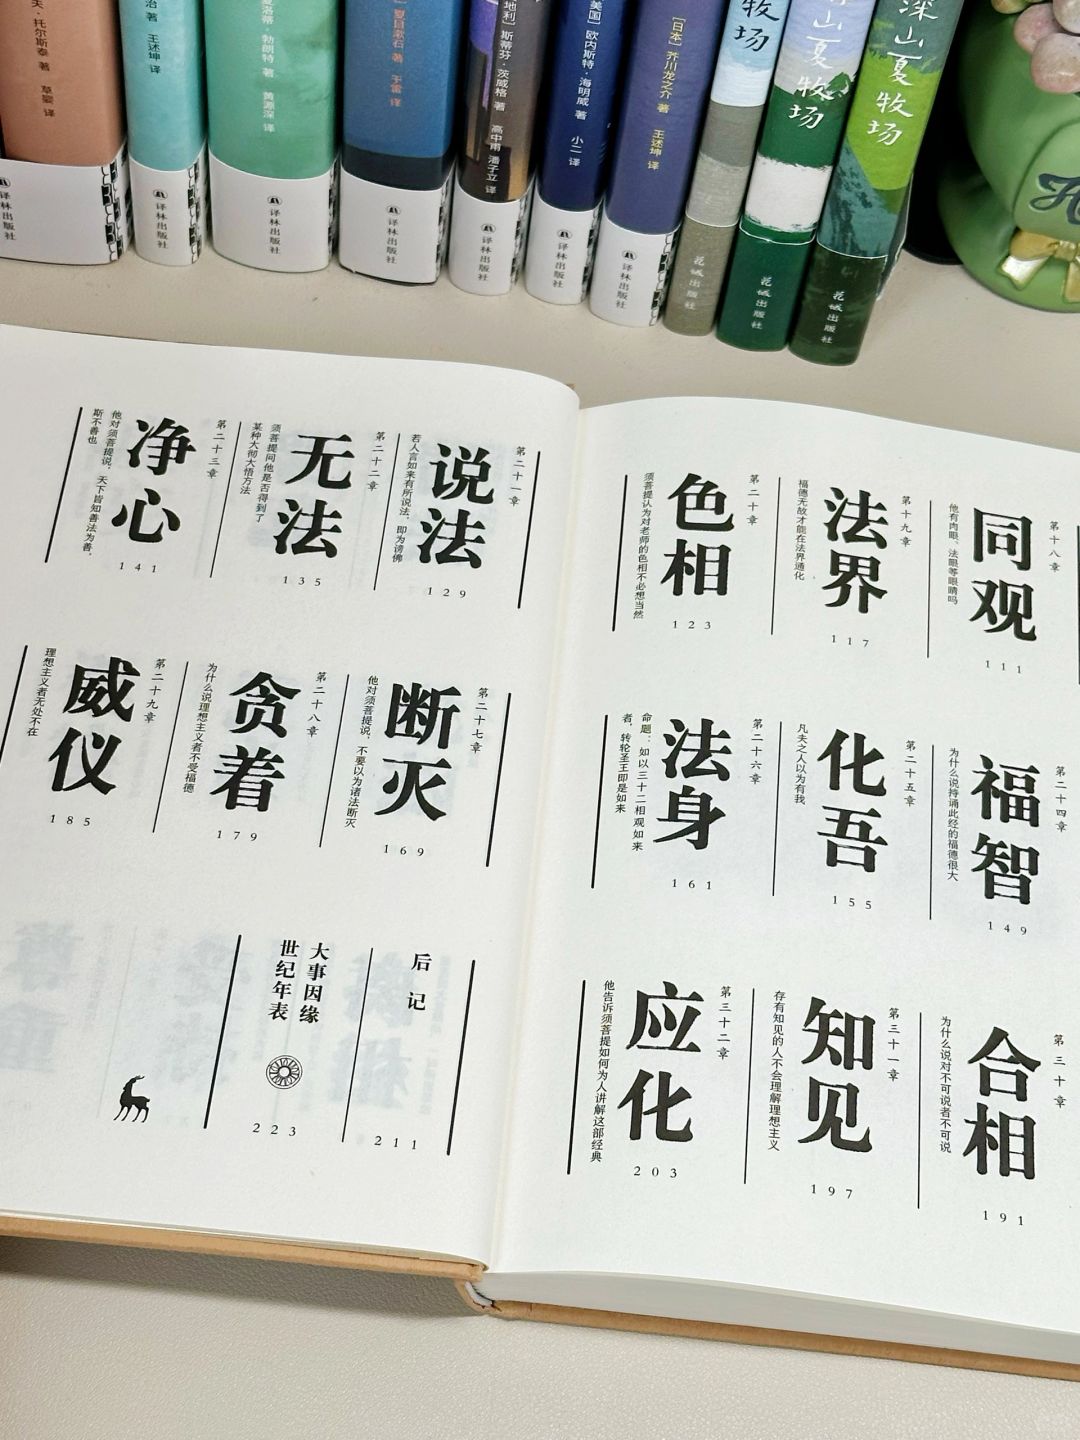 夫·托尔斯泰 著 草婴 译
译林出版社
治 著 王述坤 译
译林出版社
夏洛蒂·勃朗特 著 黄源深 译
译林出版社
夏目漱石 著 于雷 译
译林出版社
地利］斯蒂芬·茨威格 著 高中甫 潘子立 译
译林出版社
美国］欧内斯特·海明威 著 小二 译
译林出版社
［日本］芥川龙之介 著 王述坤 译
译林出版社
牧场
花城出版社
深山夏牧场
花城出版社
深山夏牧场
花城出版社
第十八章
同观
他有肉眼、法眼等眼睛吗
111
第十九章
法界
福德无故才能在法界通化
117
第二十章
色相
须菩提认为对老师的色相不必想当然
123
第二十四章
福智
为什么说持诵此经的福德很大
149
第二十五章
化吾
凡夫之人以为有我
155
第二十六章
法身
命题：如以三十二相观如来
者，转轮圣王即是如来
161
第三十章
合相
为什么说对不可说者不可说
191
第三十一章
知见
存有知见的人不会理解理想主义
197
第三十二章
应化
他告诉须菩提如何为人讲解这部经典
203
第二十一章
说法
若人言如来有所说法，即为谤佛
129
第二十二章
无法
须菩提问他是否得到了
某种大彻大悟方法
135
第二十三章
净心
他对须菩提说，天下皆知善法为善，
斯不善也
141
第二十七章
断灭
他对须菩提说，不要以为诸法断灭
169
第二十八章
贪着
为什么说理想主义者不受福德
179
第二十九章
威仪
理想主义者无处不在
185
后记
211
大事因缘
世纪年表
223